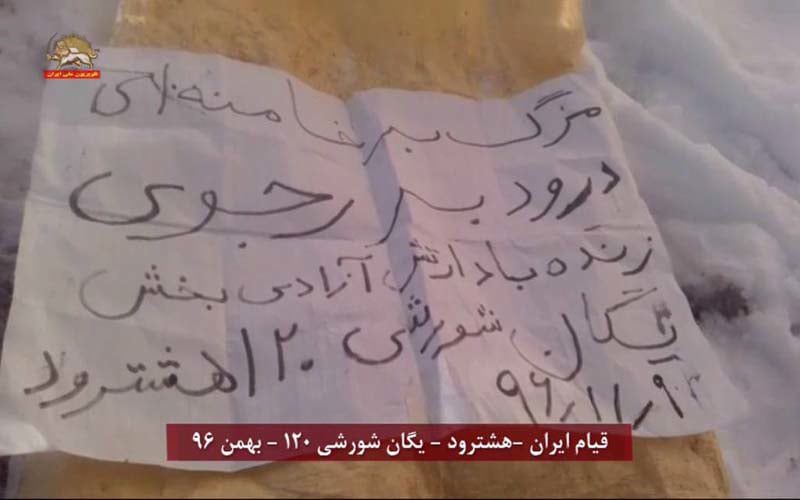 تلویزیون ملی ایران
مرگ بر خامنه ای
درود بر رجوی
زنده باد ارتش آزادی بخش
یگان شورشی ۱۲۰ هشترود
۹۶٫۱۱٫۹
قیام ایران -هشترود - یگان شورشی ۱۲۰ - بهمن ۹۶